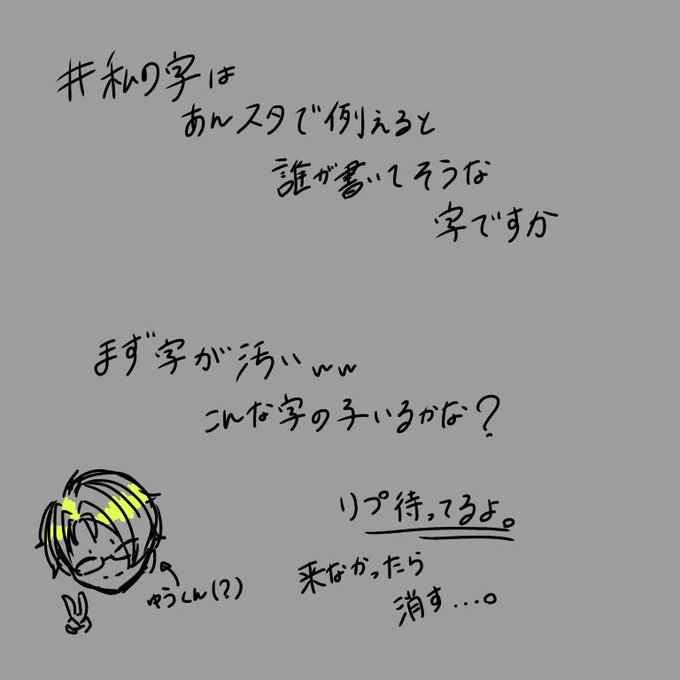 #私の字は
あんスタで例えると
誰が書いてそうな
字ですか
まず字が汚いww
こんな字の子いるかな?
リプ待ってるよ。
ゆうくん(?)
来なかったら
消す...。